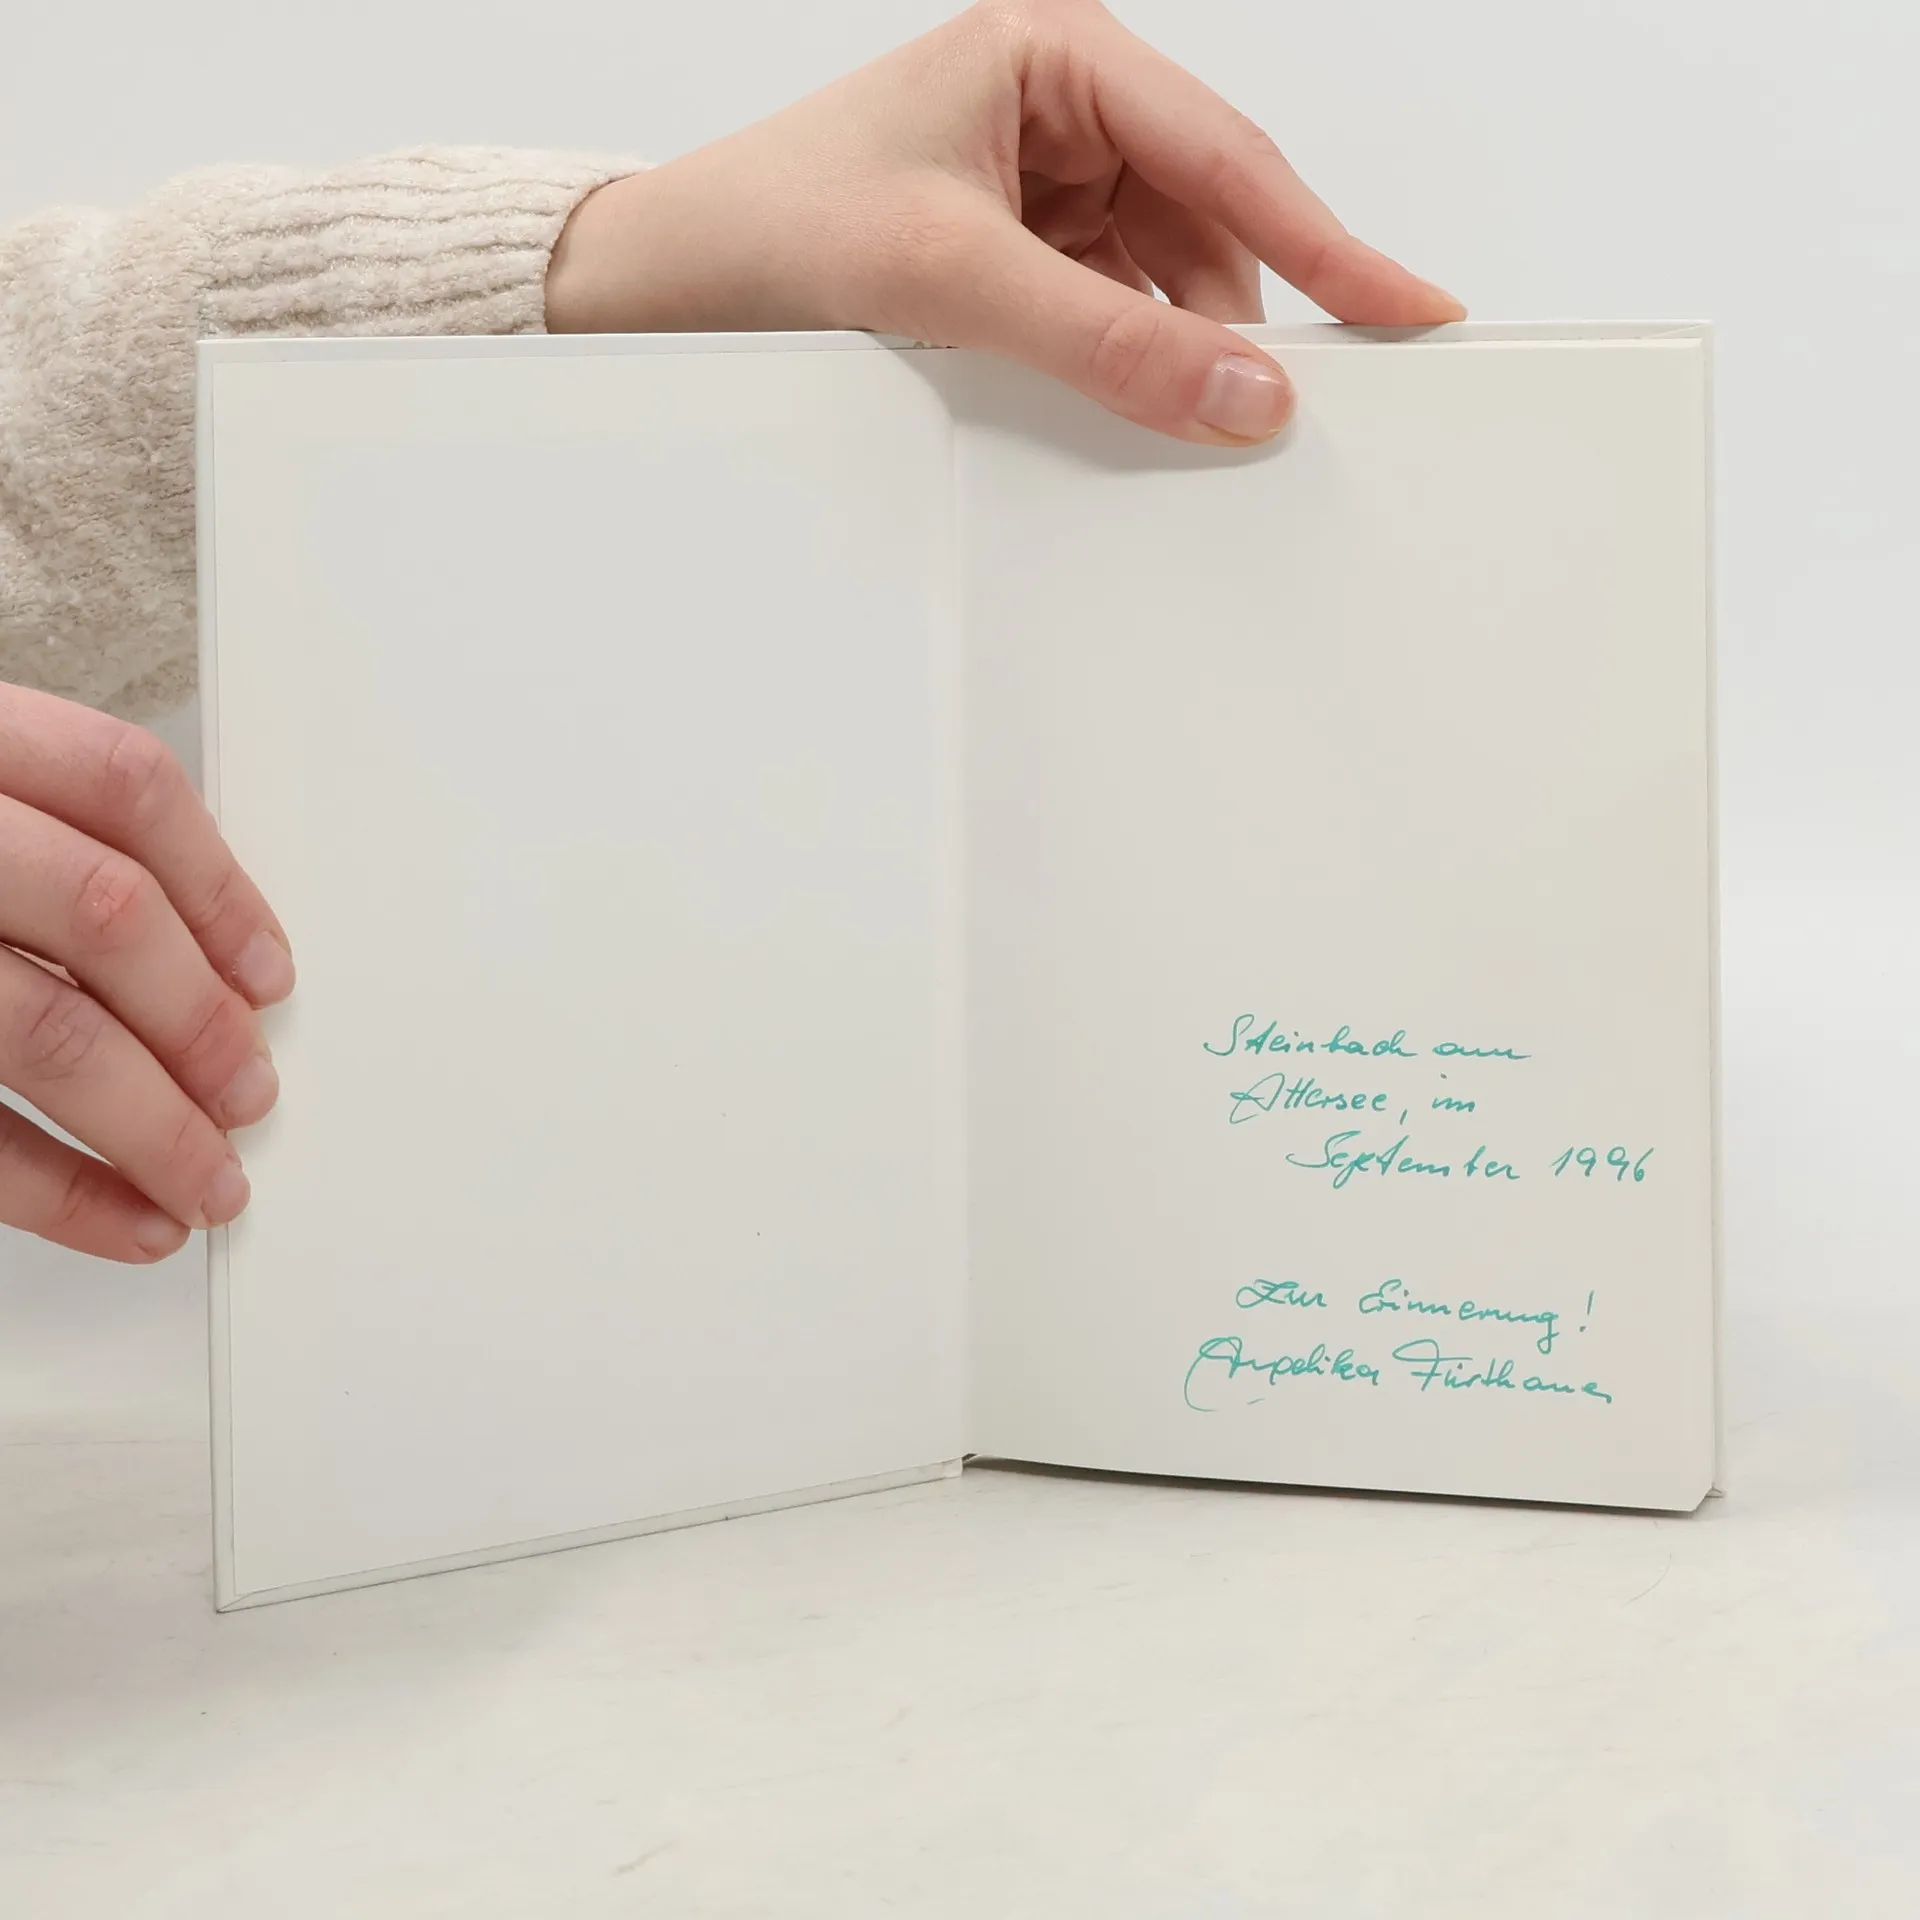 Steinbach am
Attersee, im
September 1996
Zur Erinnerung!
Angelika Fürthauer